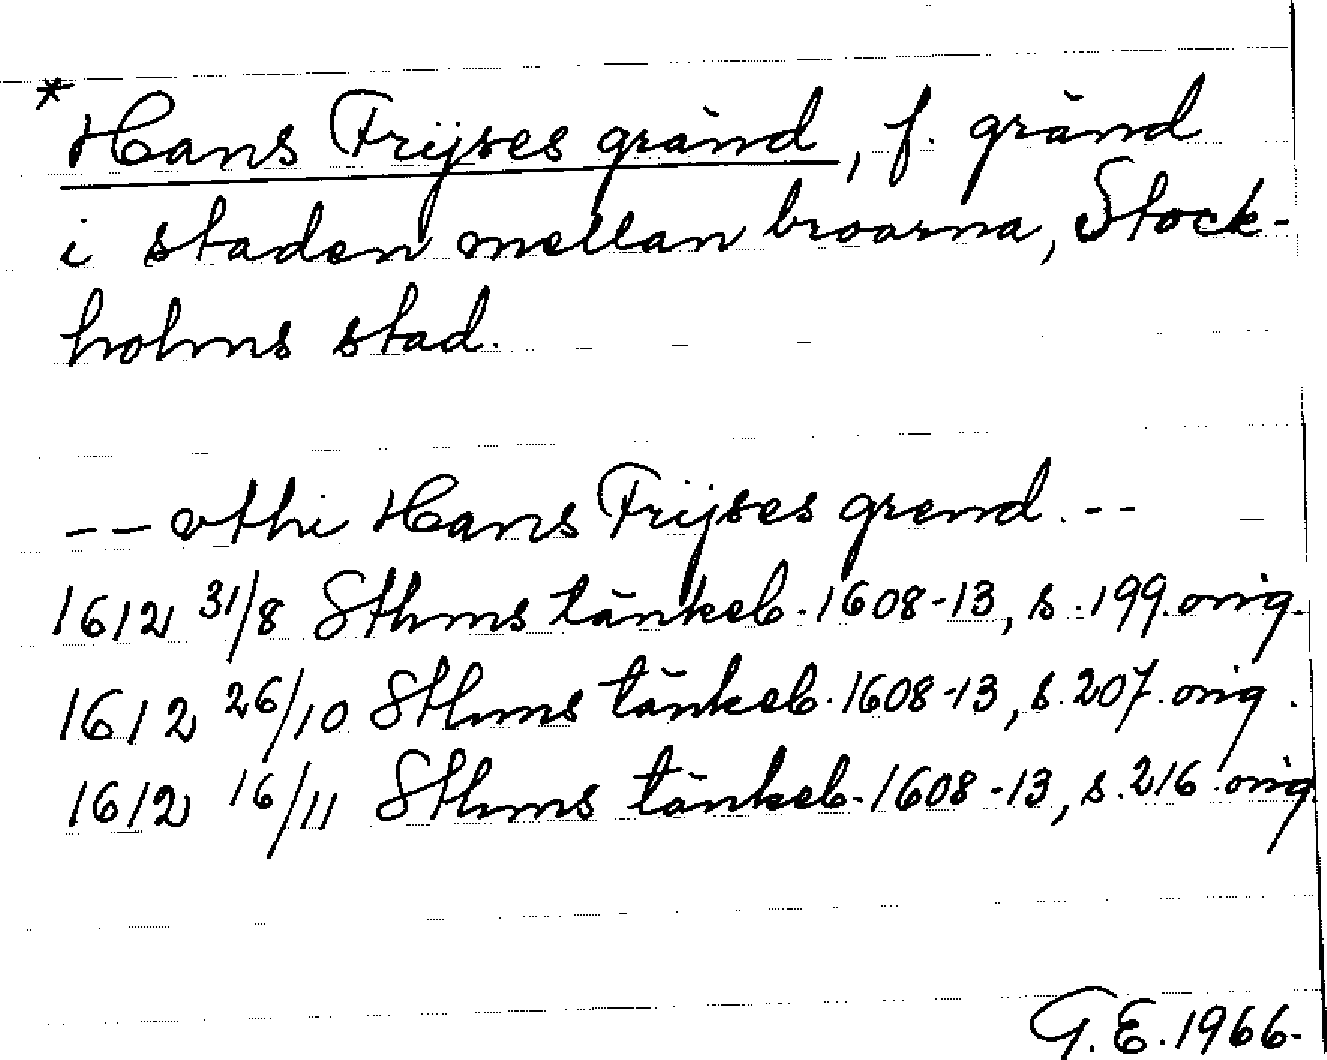 * Hans Frijses gränd, f. gränd
i staden mellan broarna, Stock-
holms stad.
-- vthi Hans Frijses grend. --
1612 31/8 Sthms tänkeb. 1608-13, s. 199 orig.
1612 26/10 Sthms tänkeb. 1608-13, s. 207 orig.
1612 16/11 Sthms tänkeb. 1608-13, s. 216 orig
G.E. 1966.